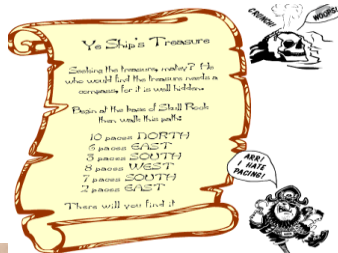 Ye Ship's Treasure
Seeking the treasure, matey? He
who would find the treasure needs a
compass, for it is well hidden.
Begin at the base of Skull Rock
then walk this path:
10 paces NORTH
6 paces EAST
3 paces SOUTH
8 paces WEST
7 paces SOUTH
2 paces EAST
There will you find it
CRUNCH!
WOURS!
ARR!
I HATE
PACING!